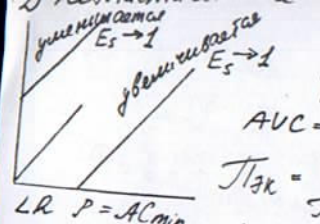 уменьшается
E_s → 1
увеличивается
E_s → 1
AVC =
П_эк =
LR P = AC_min